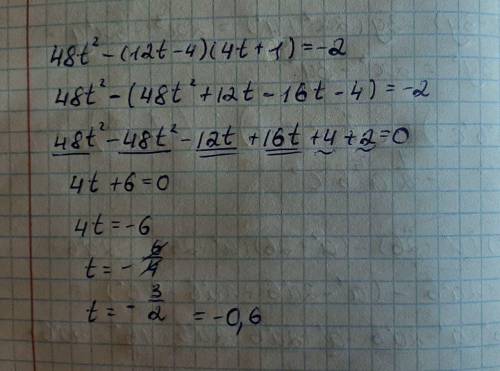 48t² - (12t - 4)(4t + 1) = -2
48t² - (48t² + 12t - 16t - 4) = -2
48t² - 48t² - 12t + 16t + 4 + 2 = 0
4t + 6 = 0
4t = -6
t = - 6/4
t = - 3/2 = -0,6